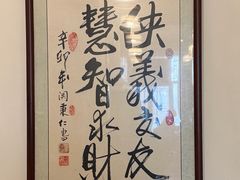 侠義交友
慧智求財
辛卯年闰東仁書